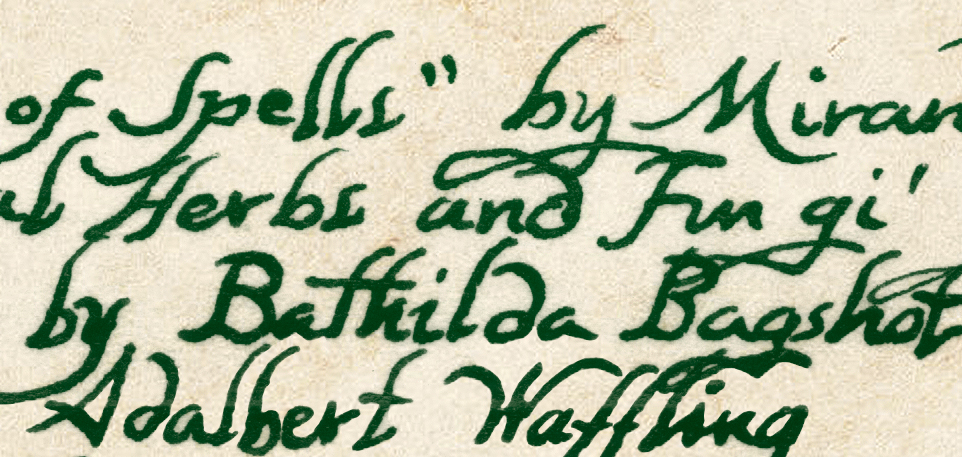 of Spells" by Miran
al Herbs and Fungi'
by Bathilda Bagshot
Adalbert Waffling